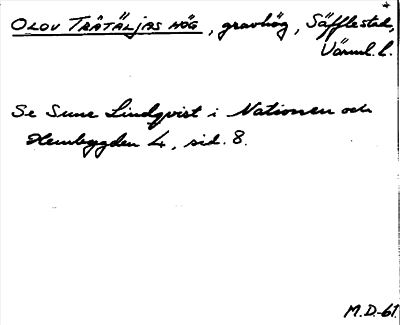 OLOV TRÄTÄLJAS HÖG, gravhög, Säffle stad,
Värml. l.
Se Sune Lindqvist i Nationen och
Hembygden 4, sid. 8.
M.D.-61.